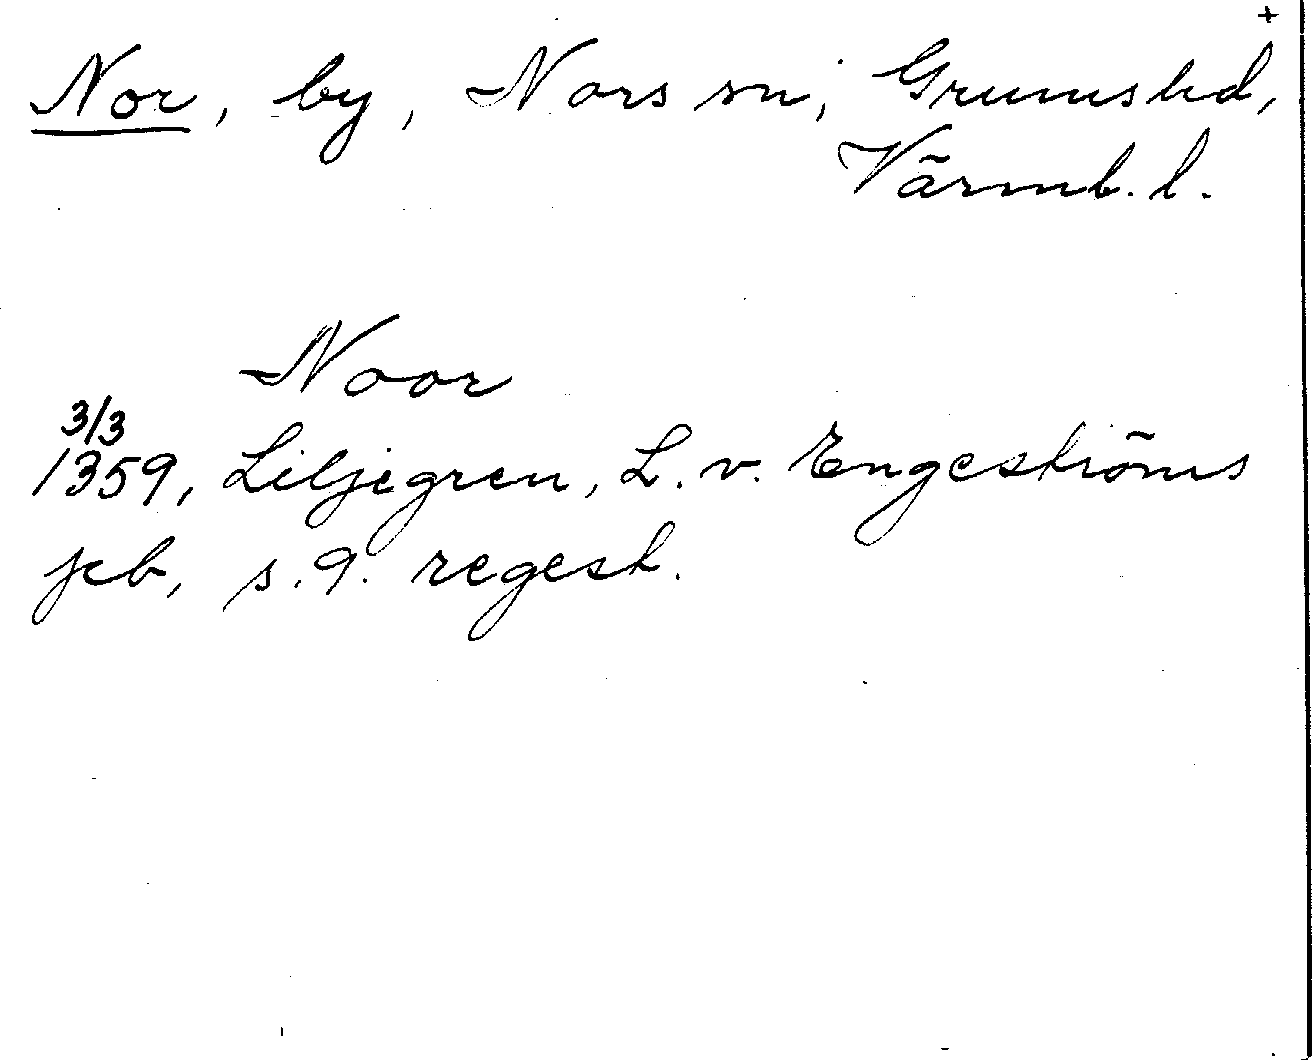 +
Nor, by, Nors sn, Grums hd,
Värml. l.
Noor
3/3
1359, Liljegren, L. v. Engeströms
jcb, s. 9. regest.